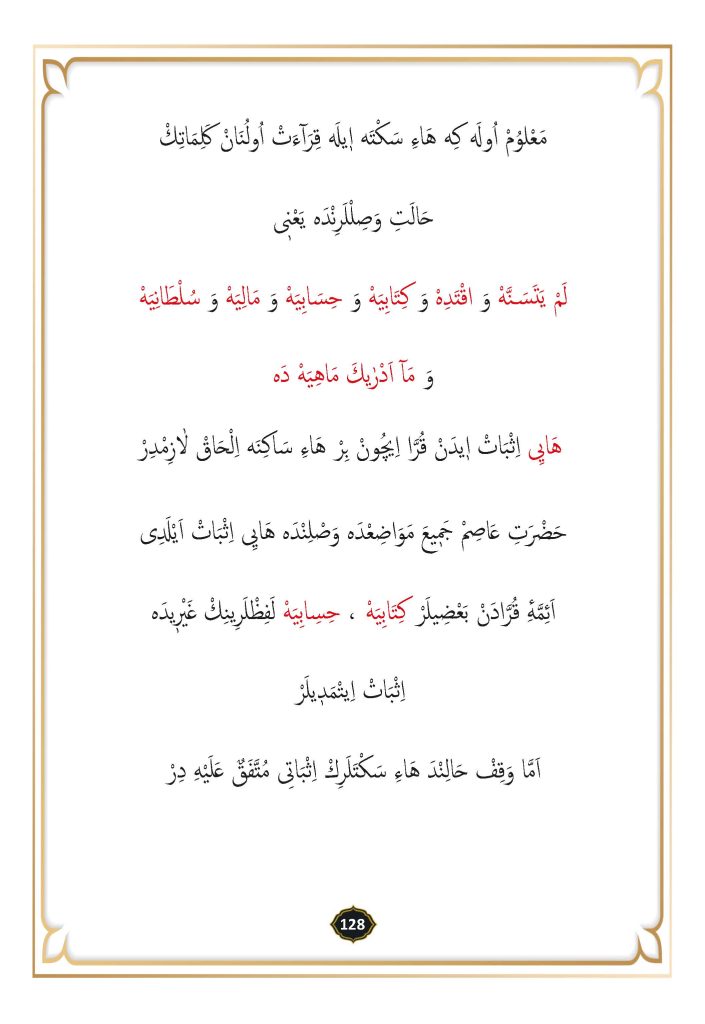 مَعْلُومْ اُولَه كِه هَاءِ سَكْتَه اٖيلَه قِرَآءَتْ اُولُنَانْ كَلِمَاتِكْ
حَالَتِ وَصِلْلَرِنْدَه يَعْنٖى
لَمْ يَتَسَنَّهْ وَ اقْتَدِهْ وَ كِتَابِيَهْ وَ حِسَابِيَهْ وَ مَالِيَهْ وَ سُلْطَانِيَهْ
وَ مَآ اَدْرٰيكَ مَاهِيَهْ دَه
هَايِى اِثْبَاتْ اٖيدَنْ قُرَّا اِيچُونْ بِرْ هَاءِ سَاكِنَه اِلْحَاقْ لَازِمْدِرْ
حَضْرَتِ عَاصِمْ جَمٖيعَ مَوَاضِعْدَه وَصْلِنْدَه هَايِى اِثْبَاتْ اَيْلَدِى
اَئِمَّۀِ قُرَّادَنْ بَعْضِيلَرْ كِتَابِيَهْ ، حِسِابِيَهْ لَفِظْلَرِينِكْ غَيْرٖيدَه
اِثْبَاتْ اِيتْمَدٖيلَرْ
اَمَّا وَقِفْ حَالِنْدَ هَاءِ سَكْتَلَرِكْ اِثْبَاتِى مُتَّفَقٌ عَلَيْهِ دِرْ
128